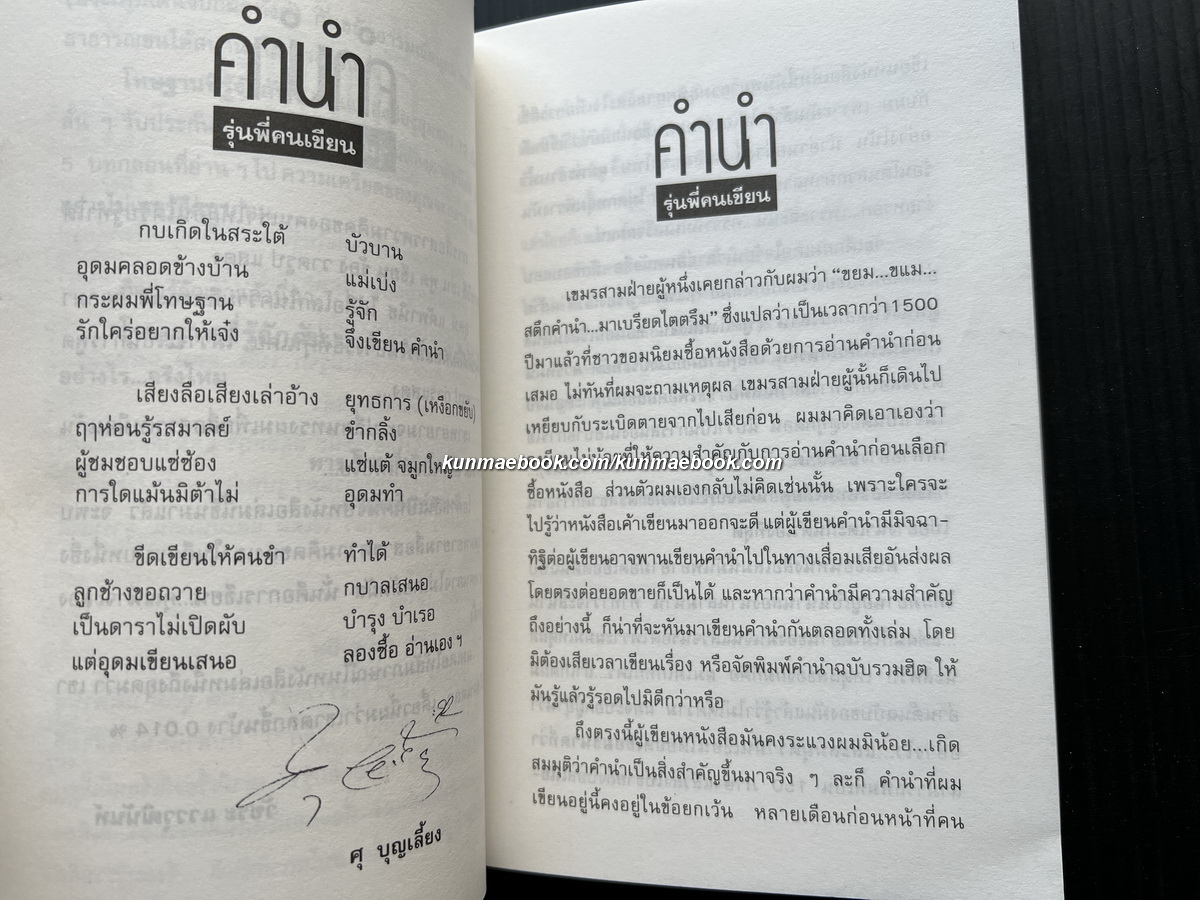 คำนำ
รุ่นพี่คนเขียน
กบเกิดในสระใต้ บัวบาน
อุดมคลอดข้างบ้าน แม่เบ่ง
กระผมพี่โทษฐาน รู้จัก
รักใคร่อยากให้เจ๋ง จึงเขียน คำนำ
เสียงลือเสียงเล่าอ้าง ยุทธการ (เหงือกขยับ)
ฤๅห่อนรู้รสมาลย์ ขำกลิ้ง
ผู้ชมชอบแซ่ซ้อง แซ่แต้ จมูกใหญ่
การใดแม้นมิต้าไม่ อุดมทำ
ขีดเขียนให้คนขำ ทำได้
ลูกช้างขอถวาย กบาลเสนอ
เป็นดาราไม่เปิดผับ บำรุง บำเรอ
แต่อุดมเขียนเสนอ ลองซื้อ อ่านเอง ฯ
ศุ บุญเลี้ยง
คำนำ
รุ่นพี่คนเขียน
เขมรสามฝ่ายผู้หนึ่งเคยกล่าวกับผมว่า “ขยม...ขแม...
สตึกคำนำ...มาเบรียดไตตรึม” ซึ่งแปลว่า เป็นเวลากว่า 1500
ปีมาแล้วที่ชาวขอมนิยมซื้อหนังสือด้วยการอ่านคำนำก่อน
เสมอ ไม่ทันที่ผมจะถามเหตุผล เขมรสามฝ่ายผู้นั้นก็เดินไป
เหยียบกับระเบิดตายจากไปเสียก่อน ผมมาคิดเอาเองว่า
ที่ให้ความสำคัญกับการอ่านคำนำก่อนเลือก
ซื้อหนังสือ ส่วนตัวผมเองกลับไม่คิดเช่นนั้น เพราะใครจะ
ไปรู้ว่าหนังสือเค้าเขียนมาออกจะดี แต่ผู้เขียนคำนำมีมิจฉา-
ทิฐิต่อผู้เขียนอาจพานเขียนคำนำไปในทางเสื่อมเสียอันส่งผล
โดยตรงต่อยอดขายก็เป็นได้ และหากว่าคำนำมีความสำคัญ
ถึงอย่างนี้ ก็น่าที่จะหันมาเขียนคำนำกันตลอดทั้งเล่ม โดย
มิต้องเสียเวลาเขียนเรื่อง หรือจัดพิมพ์คำนำฉบับรวมฮิต ให้
มันรู้แล้วรู้รอดไปมิดีกว่าหรือ
ถึงตรงนี้ผู้เขียนหนังสือมันคงระแวงผมมิน้อย...เกิด
สมมุติว่าคำนำเป็นสิ่งสำคัญขึ้นมาจริง ๆ ละก็ คำนำที่ผม
เขียนอยู่นี้คงอยู่ในข้อยกเว้น หลายเดือนก่อนหน้าที่คน
kunmaebook.com/kunmaebook.com